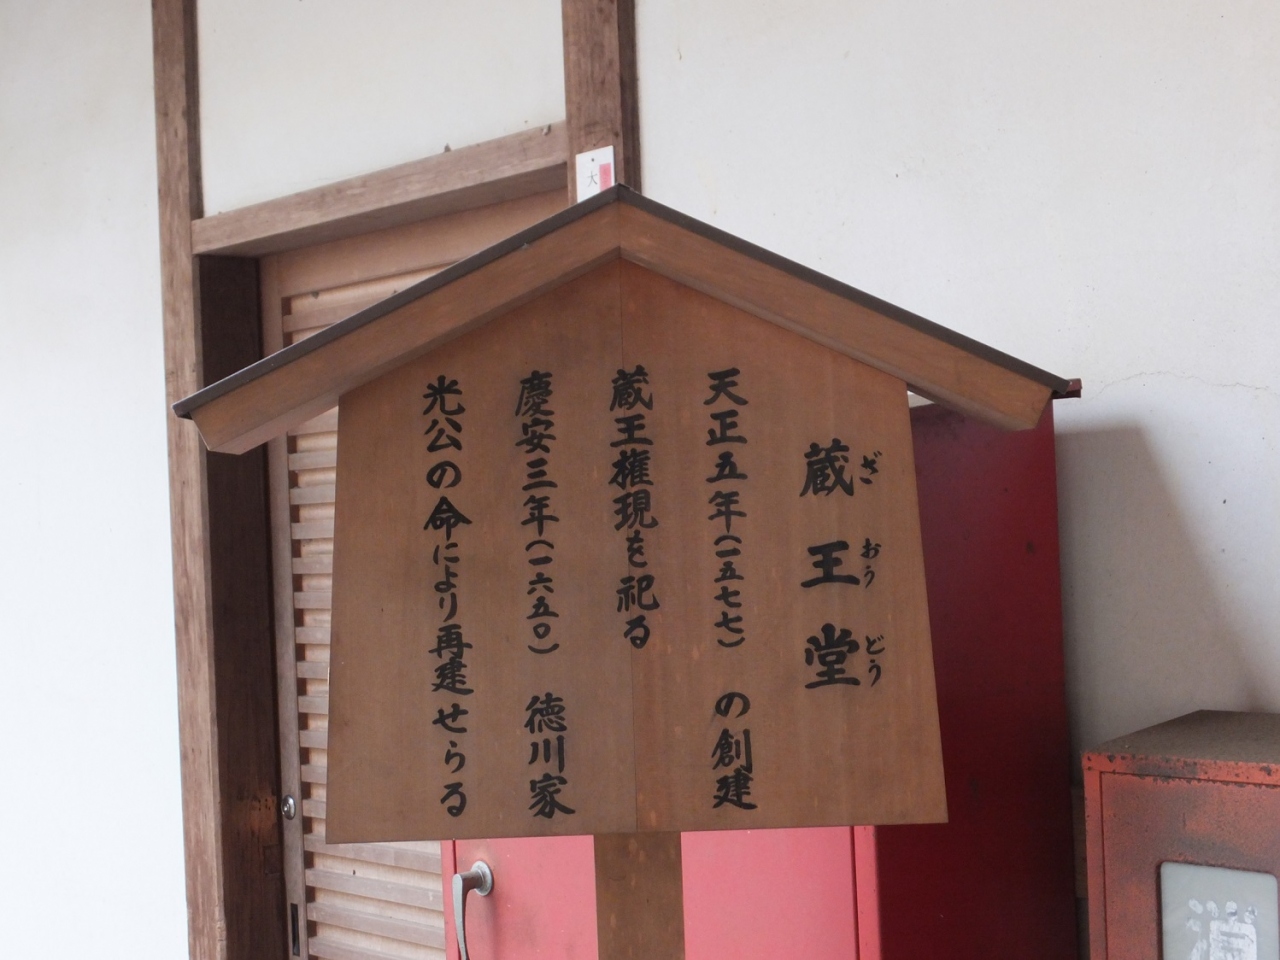 蔵王堂
ざおうどう
天正五年(一五七七)の創建
蔵王権現を祀る
慶安三年(一六五〇)徳川家
光公の命により再建せらる
大
消